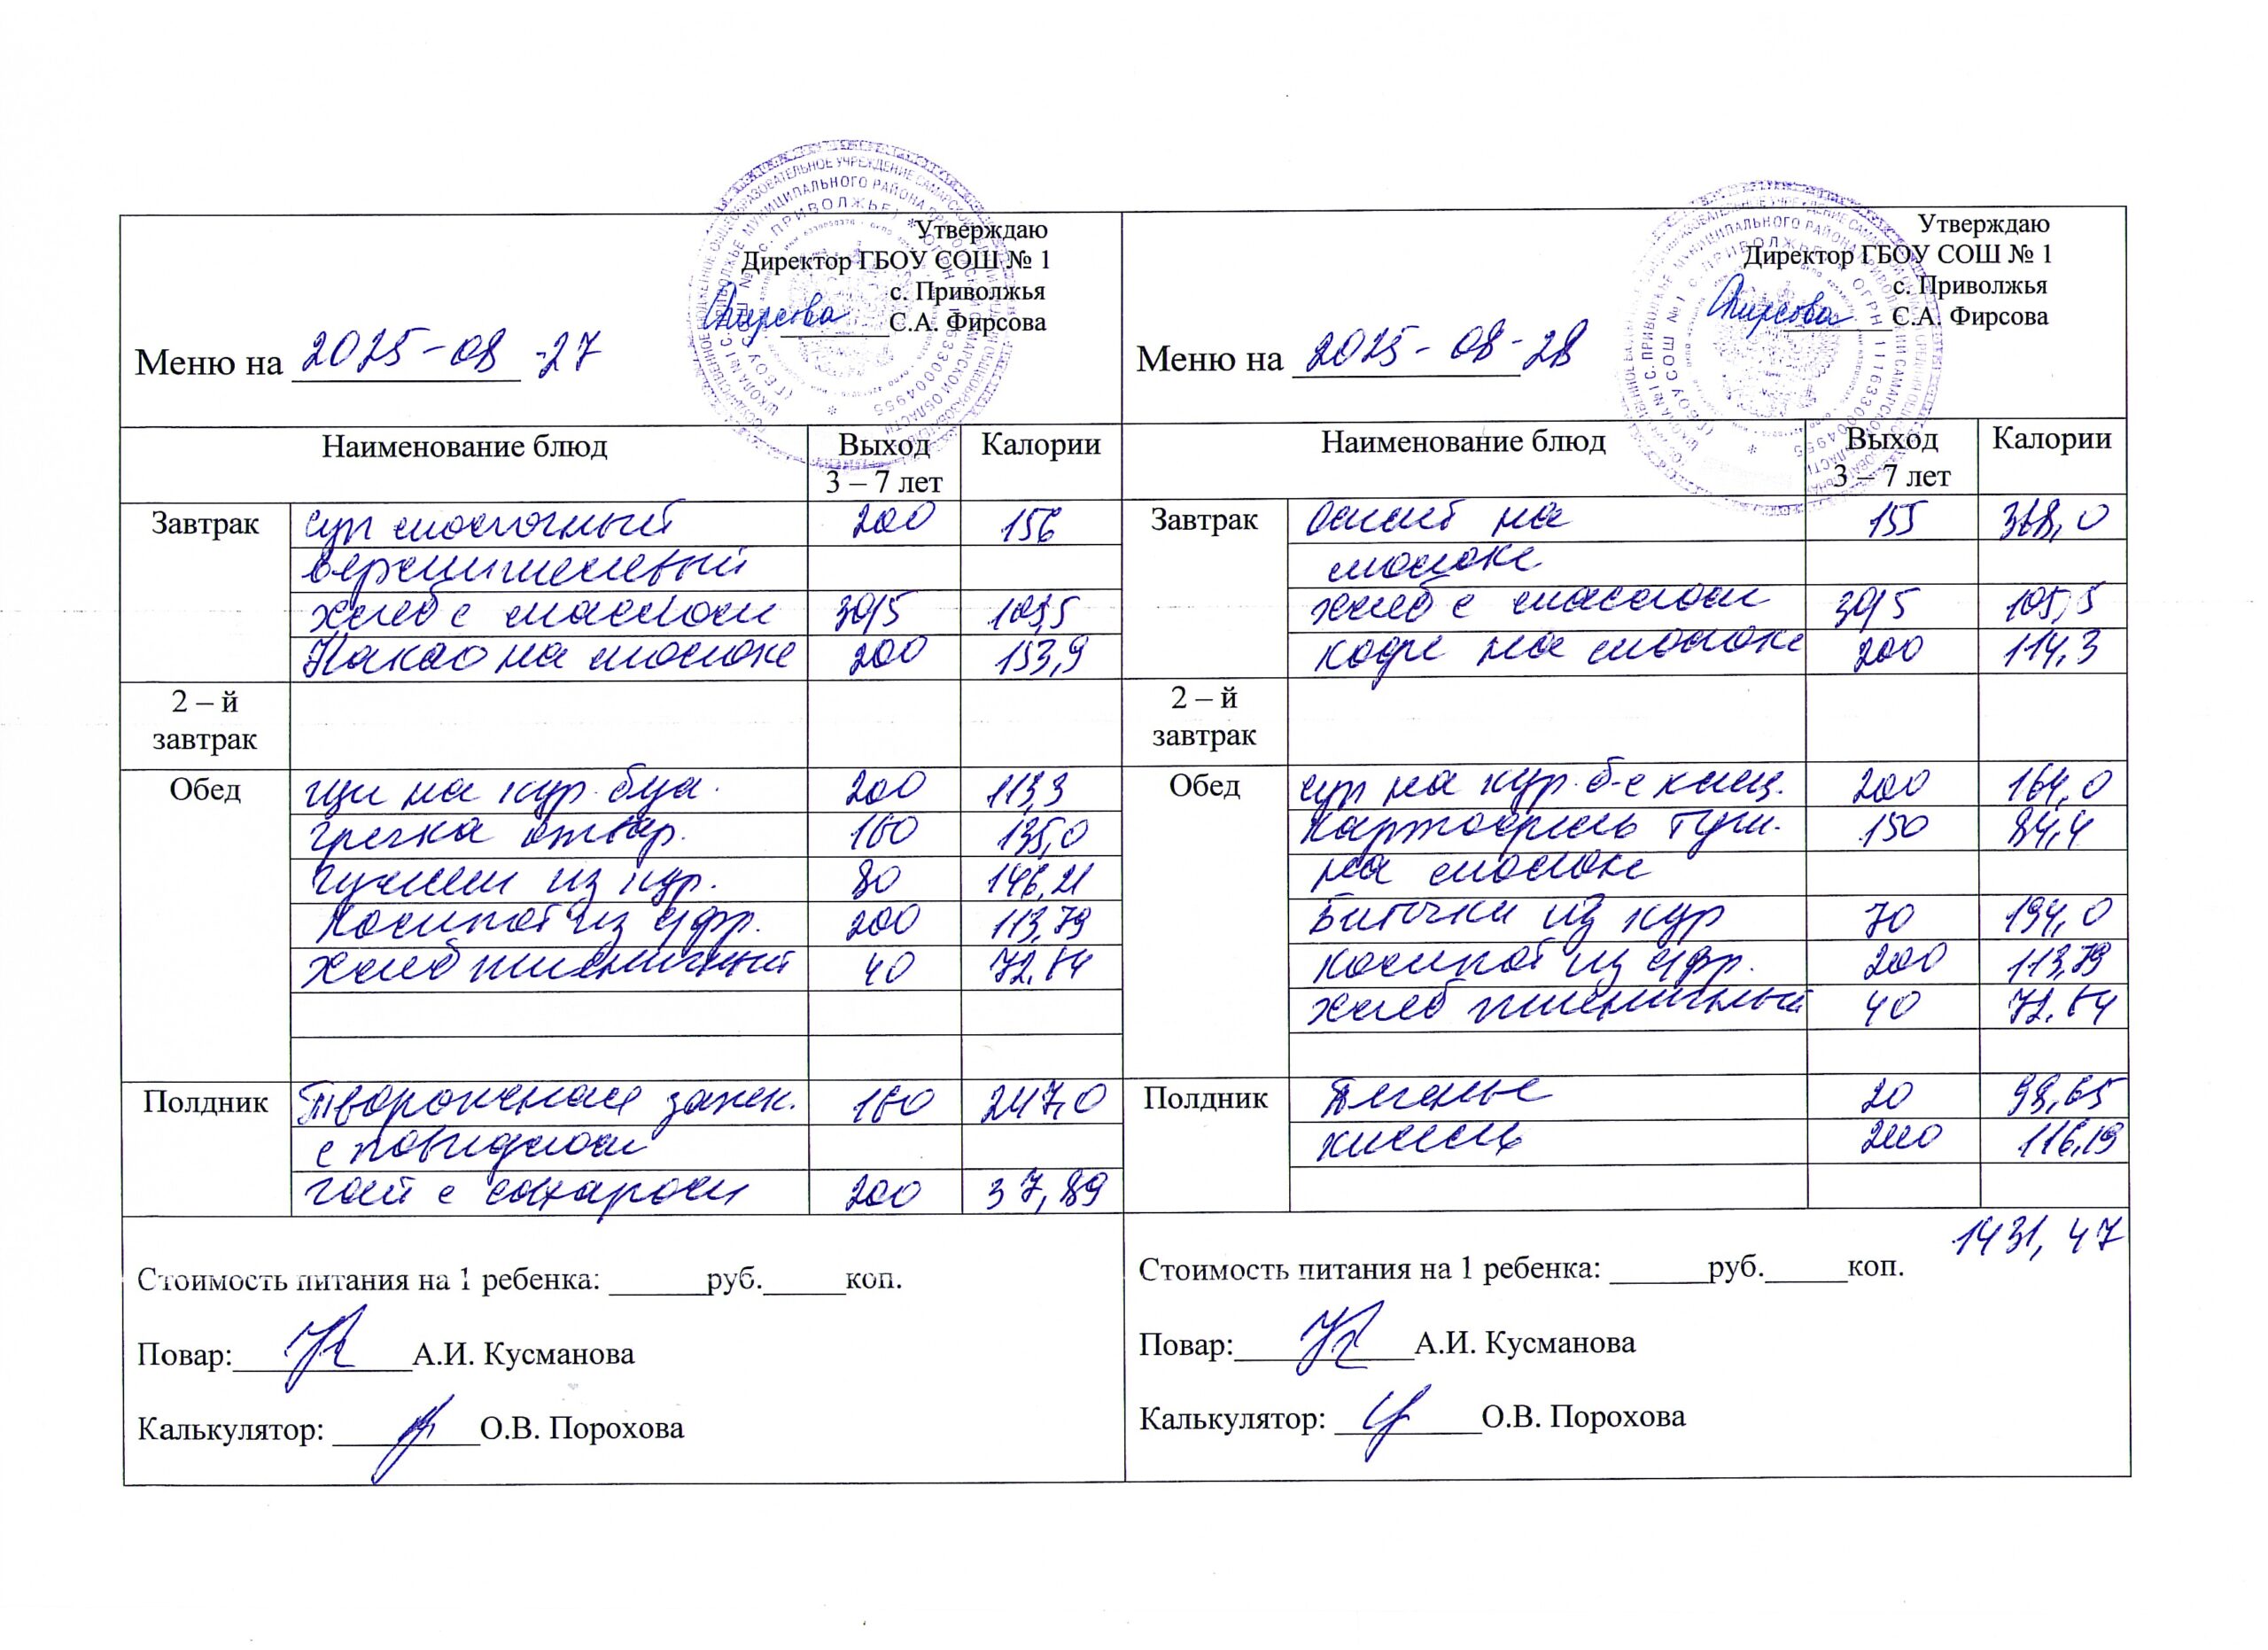 Утверждаю
Директор ГБОУ СОШ № 1
с. Приволжья
Фирсова С.А. Фирсова
Меню на 2025-08-27
Наименование блюд Выход 3 – 7 лет Калории
Завтрак суп молочный 200 156
вермишелевый
хлеб с маслом 30/5 105,5
Какао на молоке 200 153,9
2 – й завтрак
Обед щи на кур. 200 113,3
гречка отвар. 135,0
из кур. 80 146,21
Компот из с/фр. 200 113,79
Хлеб пшеничный 40
Полдник Творожная запек. 247,0
с повидлом
чай с сахаром 200 37,89
Стоимость питания на 1 ребенка: ______руб._____коп.
Повар: А.И. Кусманова
Калькулятор: О.В. Порохова
Утверждаю
Директор ГБОУ СОШ № 1
с. Приволжья
Фирсова С.А. Фирсова
Меню на 2025-08-28
Наименование блюд Выход 3 – 7 лет Калории
Завтрак Омлет на 155
молоке
хлеб с маслом 30/5 105,5
кофе на молоке 200 114,3
2 – й завтрак
Обед суп на кур. б-е 200 164,0
Картофель туш. 150 84,4
на молоке
Биточки из кур 70 194,0
компот из с/фр. 200 113,79
хлеб пшеничный 40
Полдник Печенье 20
кисель 200 116,19
1431,47
Стоимость питания на 1 ребенка: ______руб._____коп.
Повар: А.И. Кусманова
Калькулятор: О.В. Порохова